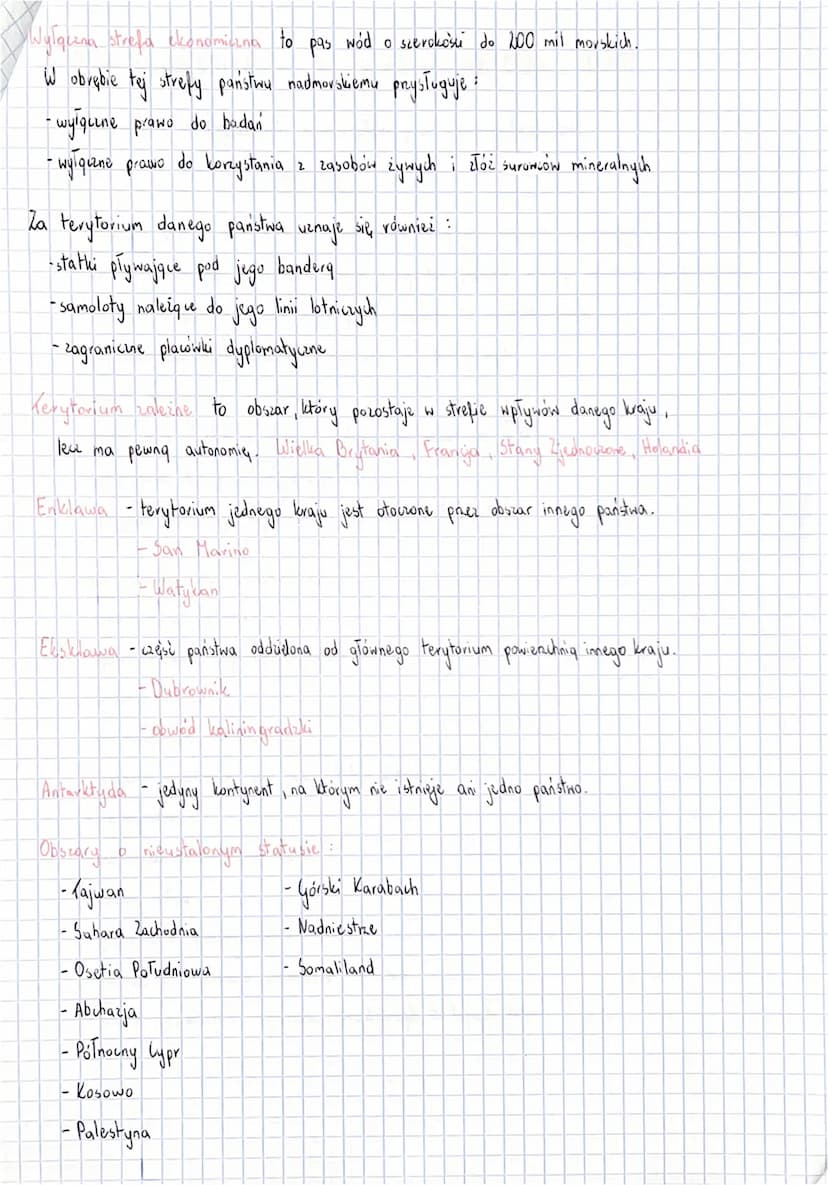 Wyłączna strefa ekonomiczna to pas wód o szerokości do 200 mil morskich.
W obrębie tej strefy państwu nadmorskiemu przysługuje:
- wyłączne prawo do badań
- wyłączne prawo do korzystania z zasobów żywych i złóż surowców mineralnych
Za terytorium danego państwa uznaje się również:
- statki pływające pod jego banderą
- samoloty należące do jego linii lotniczych
- zagraniczne placówki dyplomatyczne
Terytorium zależne to obszar, który pozostaje w strefie wpływów danego kraju,
lecz ma pewną autonomię. Wielka Brytania, Francja, Stany Zjednoczone, Holandia
Enklawa - terytorium jednego kraju jest otoczone przez obszar innego państwa.
- San Marino
- Watykan
Eksklawa - część państwa oddzielona od głównego terytorium powierzchnią innego kraju.
- Dubrownik
- obwód kaliningradzki
Antarktyda - jedyny kontynent, na którym nie istnieje ani jedno państwo.
Obszary o nieustalonym statusie:
- Tajwan
- Sahara Zachodnia
- Osetia Południowa
- Abchazja
- Północny Cypr
- Kosowo
- Palestyna
- Górski Karabach
- Nadniestrze
- Somaliland